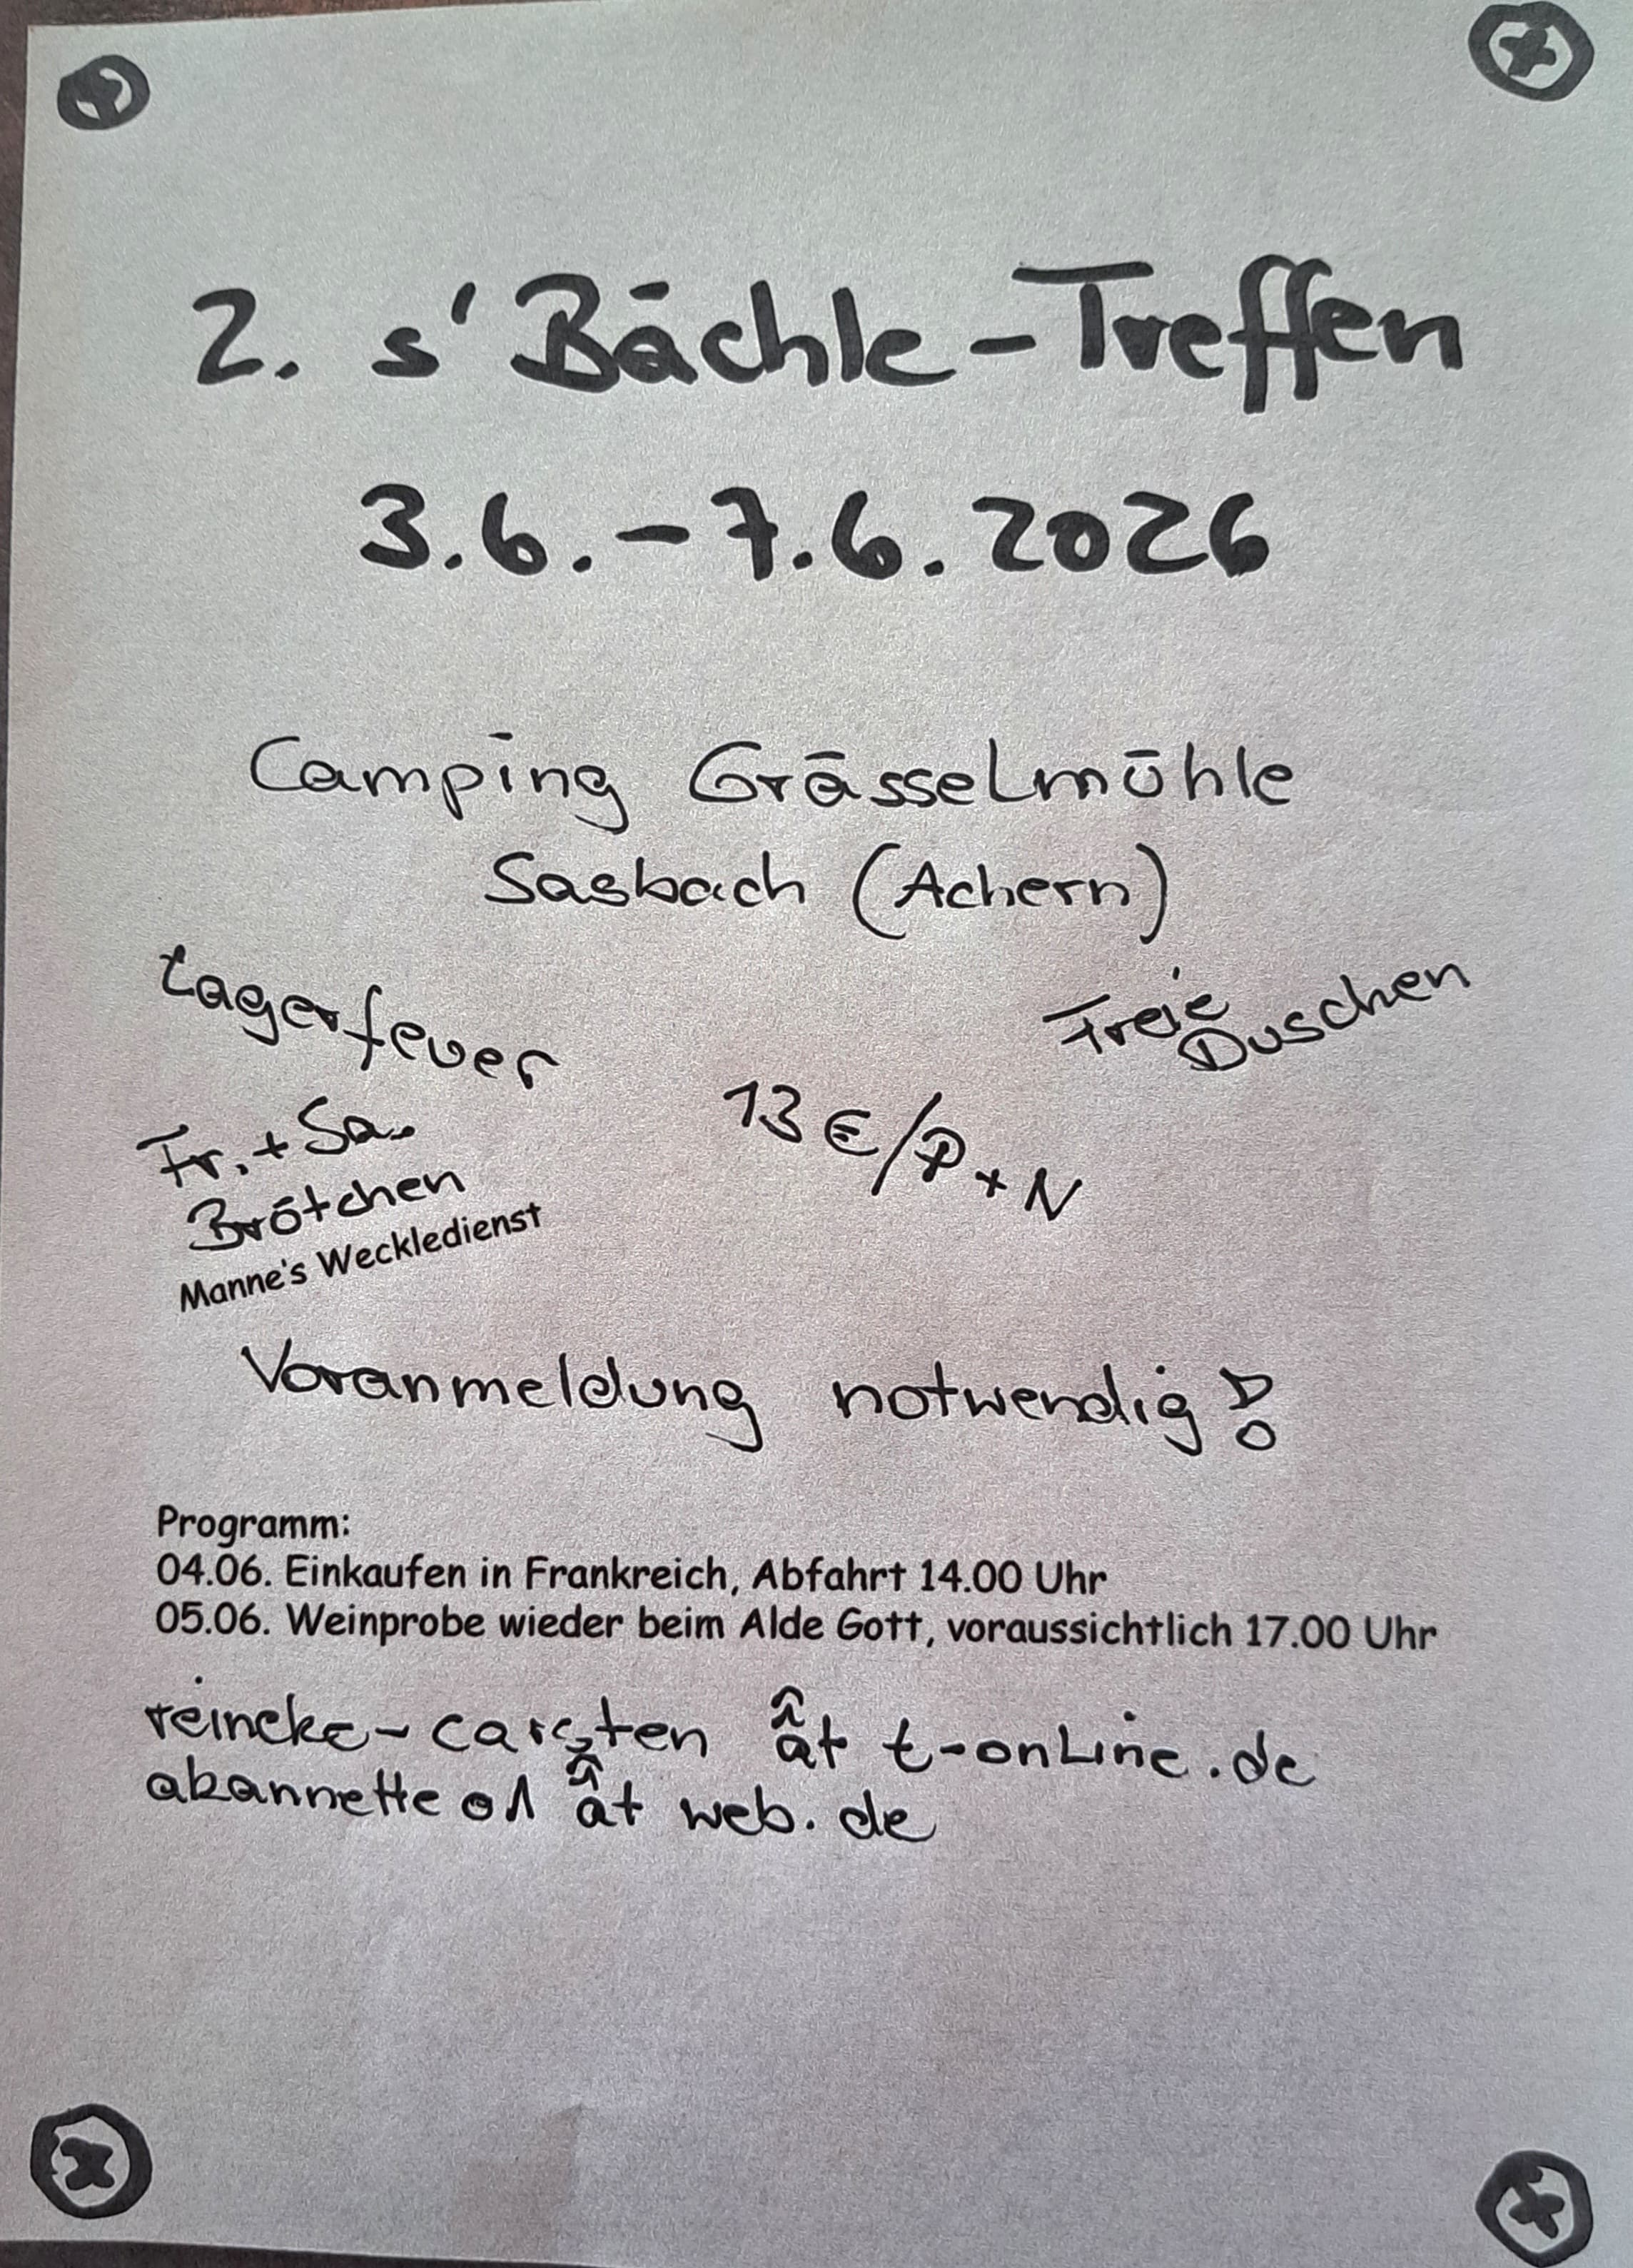 2. s' Bächle-Treffen
3.6.-7.6.2026
Camping Grässelmühle
Sasbach (Achern)
Lagerfeuer
Freie
Duschen
Fr.+Sa.
Brötchen
Manne's Weckledienst
13€/P+N
Voranmeldung notwendig!
Programm:
04.06. Einkaufen in Frankreich, Abfahrt 14.00 Uhr
05.06. Weinprobe wieder beim Alde Gott, voraussichtlich 17.00 Uhr
reineke-carsten ät t-online.de
abannette01 ät web.de